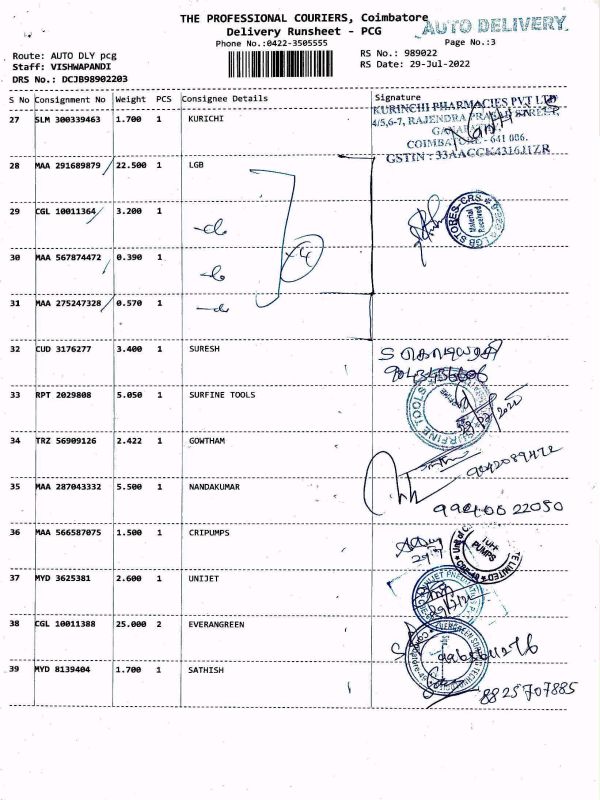 THE PROFESSIONAL COURIERS, Coimbatore
AUTO DELIVERY
Delivery Runsheet - PCG
Phone No.:0422-3505555
Page No.:3
Route: AUTO DLY pcg
RS No.: 989022
Staff: VISHWAPANDI
RS Date: 29-Jul-2022
DRS No.: DCJB98902203
S No Consignment No Weight PCS Consignee Details Signature
27 SLM 300339463 1.700 1 KURICHI
KURINCHI PHARMACIES PVT LTD
4/5,6-7, RAJENDRA PRASAD STREET,
COIMBATORE - 641 006.
GSTIN : 33AACCK4316J1ZR
28 MAA 291689879 22.500 1 LGB
29 CGL 10011364 3.200 1 -do
LGB STORES-CRS
Material Received
30 MAA 567874472 0.390 1 -do
31 MAA 275247328 0.570 1 -do
32 CUD 3176277 3.400 1 SURESH
33 RPT 2029808 5.050 1 SURFINE TOOLS
SURFINE TOOLS
34 TRZ 56909126 2.422 1 GOWTHAM
9042089472
35 MAA 287043332 5.500 1 NANDAKUMAR
9940022050
36 MAA 566587075 1.500 1 CRIPUMPS
29/7
PUMPS
37 MYD 3625381 2.600 1 UNIJET
38 CGL 10011388 25.000 2 EVERANGREEN
39 MYD 8139404 1.700 1 SATHISH
8825707885